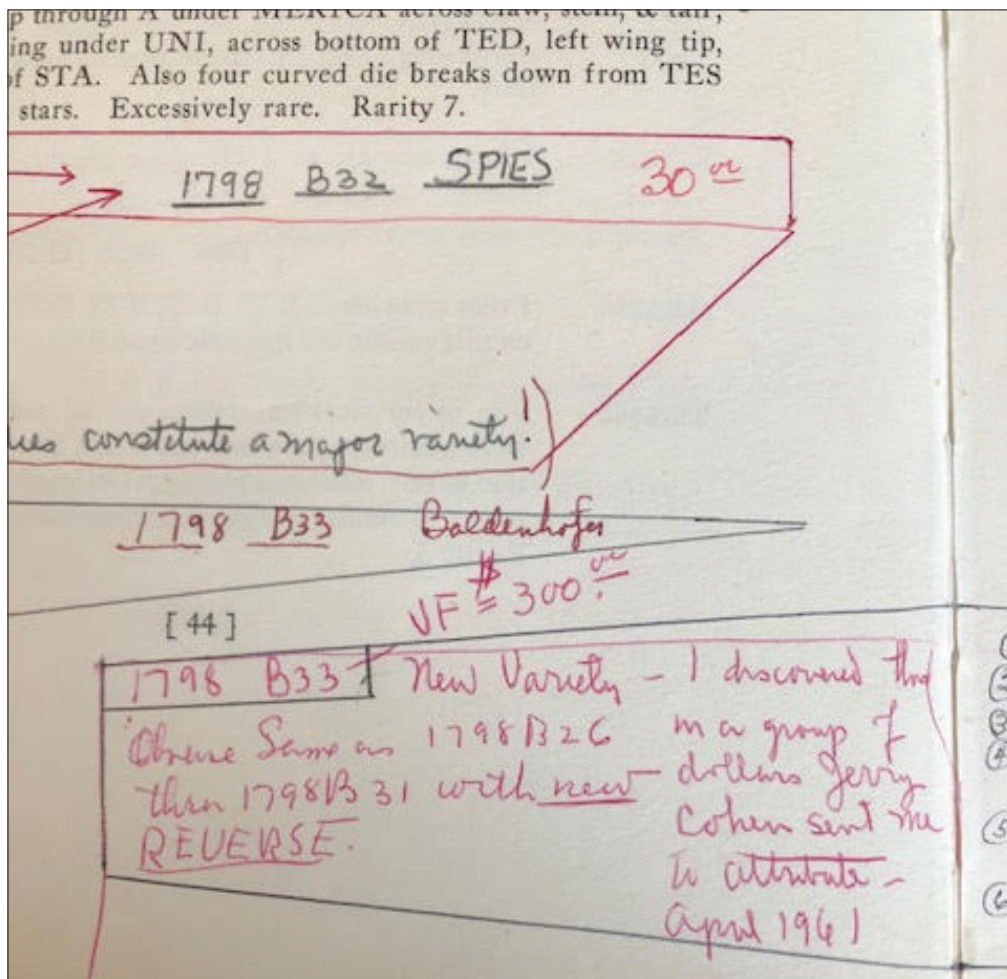 p through A under MERICA across claw, stem, & tail,
ing under UNI, across bottom of TED, left wing tip,
of STA. Also four curved die breaks down from TES
stars. Excessively rare. Rarity 7.
1798 B32 SPIES 30 00
constitute a major variety!)
1798 B33 Boldenhofer
VF $ = 300 00
[ 44 ]
1798 B33 New Variety - I discovered this
in a group of
dollars Jerry
Cohen sent me
to attribute -
April 1961
Obverse Same as 1798 B26
thru 1798 B 31 with new
REVERSE.